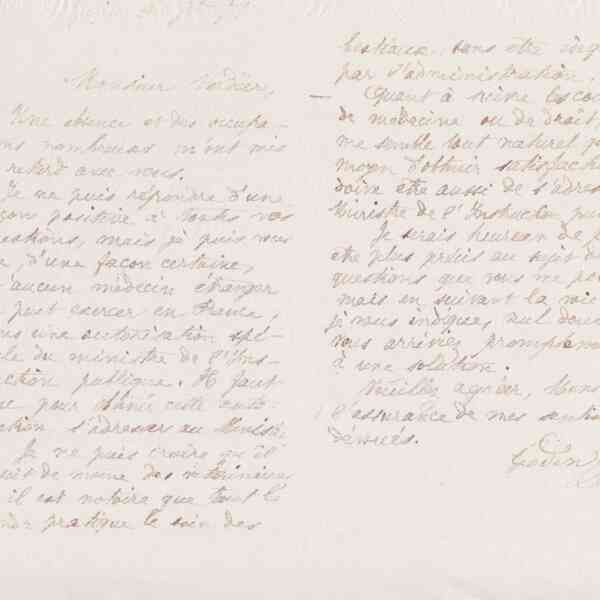 Monsieur Verdier,
Une absence et des occupa-
ns nombreuses m'ont mis
retard avec vous.
Je ne puis répondre d'une
çon positive à toutes vos
estions, mais je puis vous
e, d'une façon certaine,
'aucun médecin étranger
peut exercer en France,
ns une autorisation spé-
le du ministre de l'Ins-
ction publique. Il faut
e pour obtenir cette auto-
ation s'adresser au Ministre
Je ne puis croire qu'il
soit de même des vétérinaires
il est notoire que tout le
nde pratique le soin des
bestiaux sans être inq
par l'administration.
Quant à suivre les cou
de médecine ou de droit,
me semble tout naturel
moyen d'obtenir satisfact
doive être aussi de s'adres
Ministre de l'Instruction pu
Je serais heureux de p
être plus précis au sujet de
questions que vous me po
mais en suivant la voie
je vous indique, nul dou
vous arriviez promptem
à une solution.
Veuillez agréer, Mons
l'assurance de mes senti
dévoués.
Godin